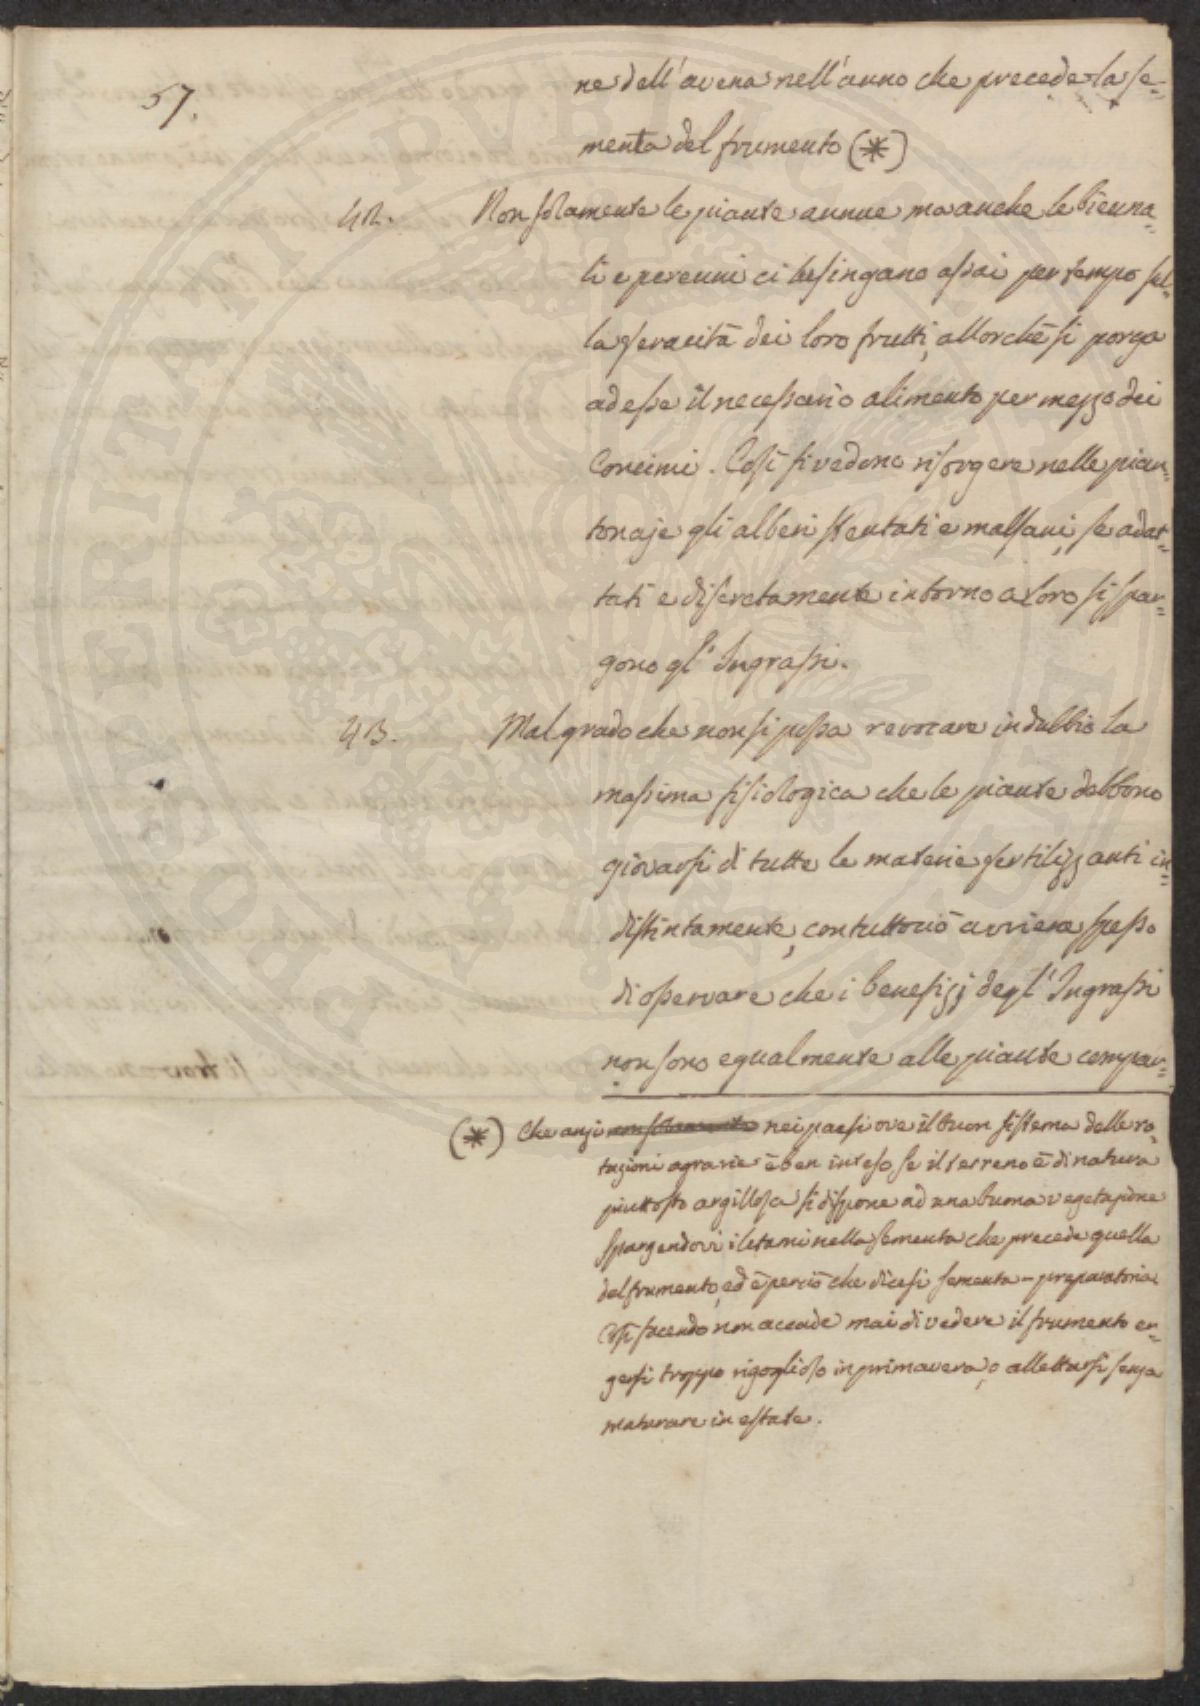 57.
ne dell'avena nell'anno che precede la se=
menta del frumento (*)
42. Non solamente le piante annue ma anche le bienna=
li e perenni ci lusingano assai per tempo sul=
la feracità dei loro frutti, allorchè si porga
ad esse il necessario alimento per mezzo dei
Concimi. Così si vedono risorgere nelle pian=
tonaje gli alberi stentati e malsani, se adat=
tati e discretamente intorno a loro si spar=
gono gl'Ingrassi.
43. Malgrado che non si possa revocare in dubbio la
massima fisiologica che le piante debbono
giovarsi di tutte le materie fertilizzanti in=
distintamente, contuttociò avviene spesso
di osservare che i benefizj degl'Ingrassi
non sono egualmente alle piante compar=
(*) Che anzi non solamente nei paesi ove il buon sistema delle ro=
tazioni agrarie è ben inteso se il terreno è di natura
piuttosto argillosa si dispone ad una buona vegetazione
spargendovi i letami nella sementa che precede quella
del frumento, ed è perciò che dicesi sementa-preparatoria.
Così facendo non accade mai di vedere il frumento er=
gersi troppo rigoglioso in primavera, o allettarsi senza
maturare in estate.
POPPLERITATI PVBLICAE